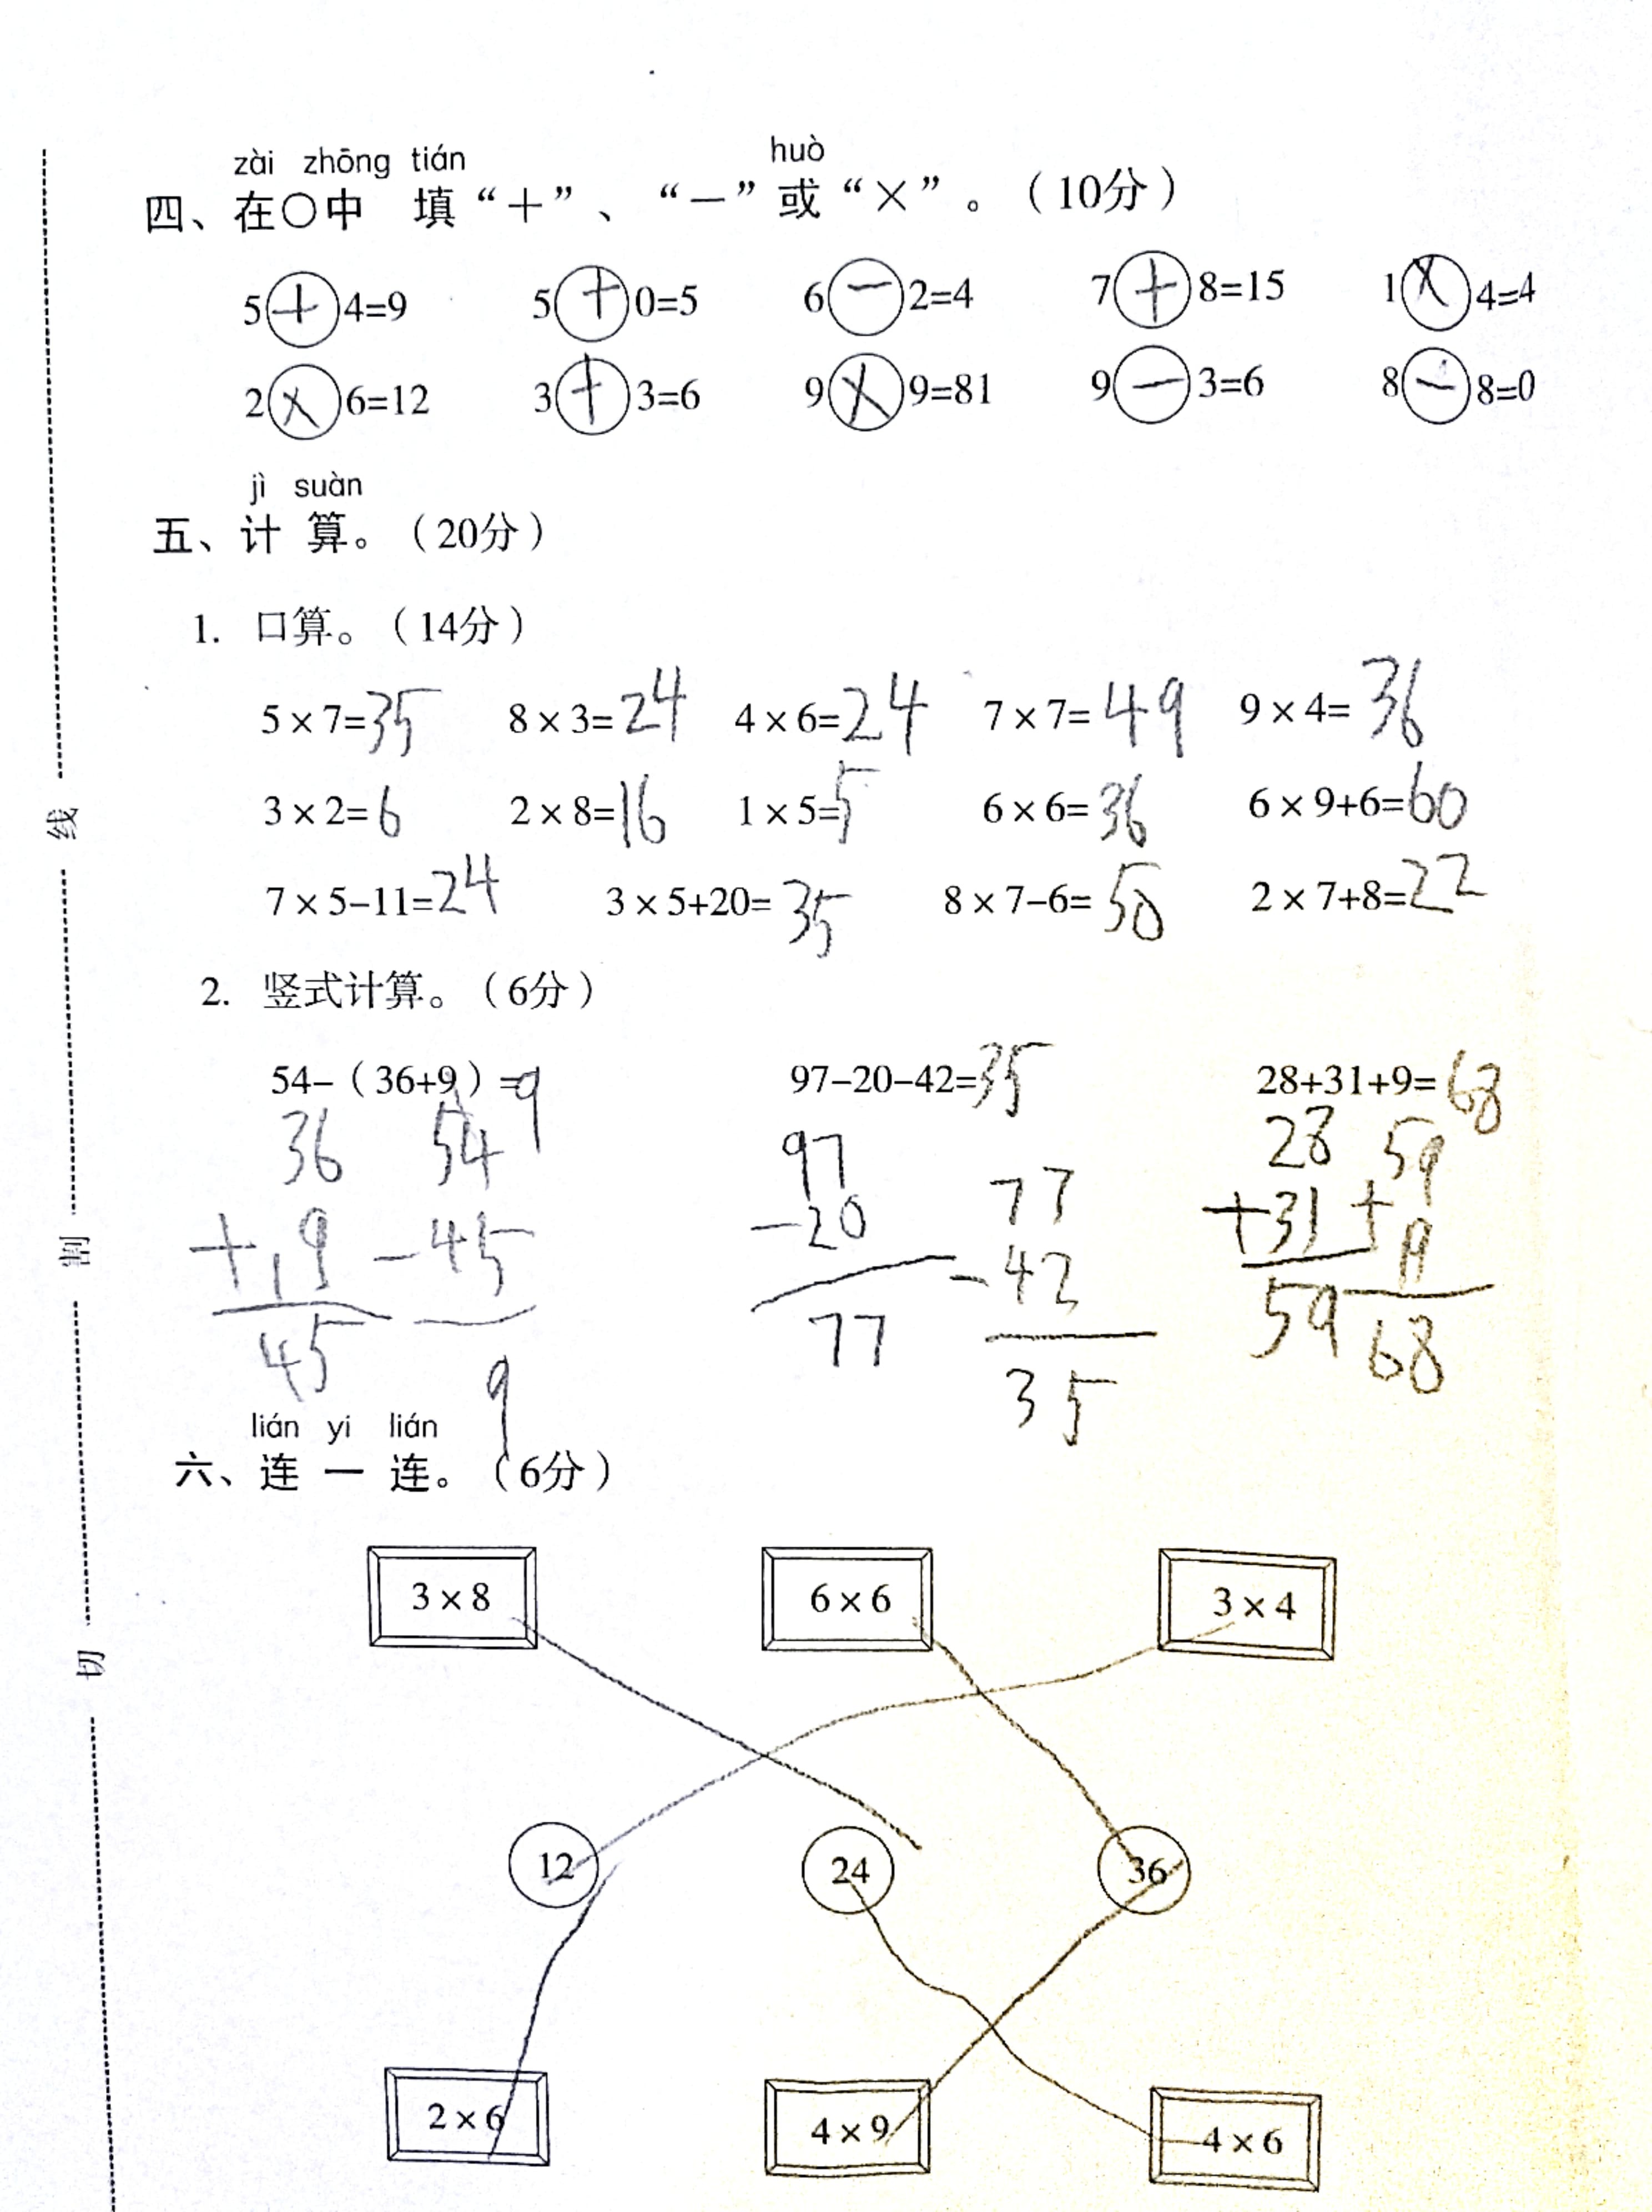 zài zhōng tián huò
四、在○中 填“＋”、“－”或“×”。（10分）
5+4=9 5+0=5 6－2=4 7+8=15 1×4=4
2×6=12 3+3=6 9×9=81 9－3=6 8－8=0
jì suàn
五、计 算。（20分）
1. 口算。（14分）
5×7=35 8×3=24 4×6=24 7×7=49 9×4=36
3×2=6 2×8=16 1×5=5 6×6=36 6×9+6=60
7×5-11=24 3×5+20=35 8×7-6=50 2×7+8=22
2. 竖式计算。（6分）
54-（36+9）=9 97-20-42=35 28+31+9=68
36 54 97 77 28 59
+19 -45 -20 -42 +31 +9
45 9 77 35 59 68
lián yi lián
六、连 一 连。（6分）
3×8 6×6 3×4
12 24 36
2×6 4×9 4×6
线
割
切